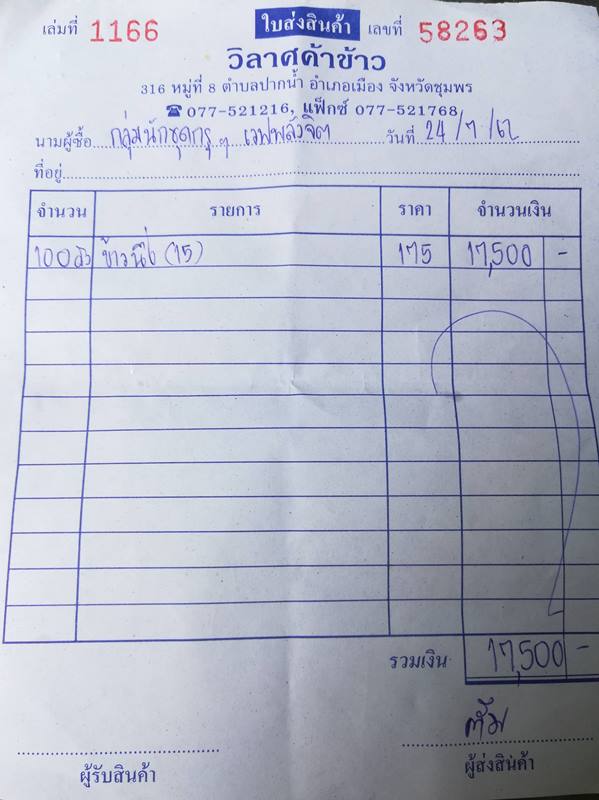 เล่มที่ 1166 ใบส่งสินค้า เลขที่ 58263
วิลาศค้าข้าว
316 หมู่ที่ 8 ตำบลปากน้ำ อำเภอเมือง จังหวัดชุมพร
☎ 077-521216, แฟ็กซ์ 077-521768
นามผู้ซื้อ กลุ่มนักขุดกรุ ๆ เวฟพลังจิต วันที่ 24/7/62
ที่อยู่
จำนวน รายการ ราคา จำนวนเงิน
100 ข้าวนึ่ง (15) 175 17,500 -
รวมเงิน 17,500 -
ผู้รับสินค้า ผู้ส่งสินค้า